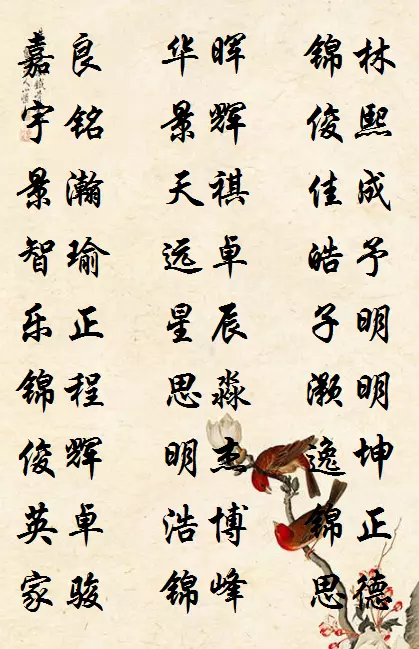 嘉良 华晖 锦林
宇铭 景辉 俊熙
景瀚 天祺 佳成
智瑜 远卓 皓予
乐正 星辰 子明
锦程 思淼 灏明
俊辉 明杰 逸坤
英卓 浩博 锦正
家骏 锦峰 思德